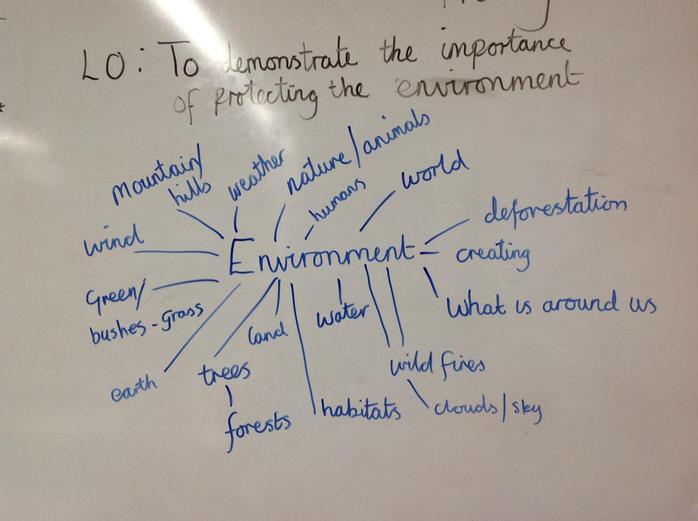 LO: To demonstrate the importance
of protecting the environment
mountain/
hills
weather
nature/animals
humans
world
wind
Environment
deforestation
creating
Green/
bushes-grass
What is around us
land
water
earth
trees
wild fires
forests
habitats
clouds/sky